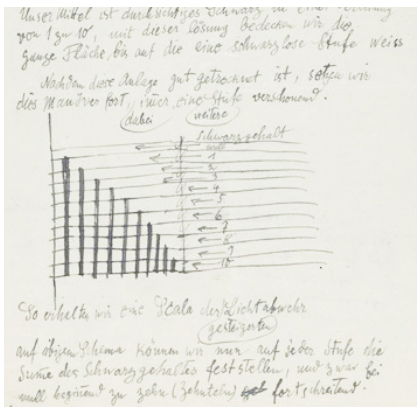 Unser Mittel ist durchsichtiges Schwarz in einer
von 1 zu 10, mit dieser Lösung bedecken wir die
ganze Fläche, bis auf die eine schwarzlose Stufe weiss
Nachdem diese Anlage gut getrocknet ist, setzen wir
dies Manöver fort, imer eine Stufe verschonend.
dabei weitere
Schwarzgehalt
null
1
2
3
4
5
6
7
8
9
10
So erhalten wir eine Scala der Lichtabwehr
gesteigerten
auf obigen Schema können wir nun auf jeder Stufe die
Sume des Schwarzgehaltes feststellen, und zwar bei
null beginend zu zehn (Zehnteln) fortschreitend.